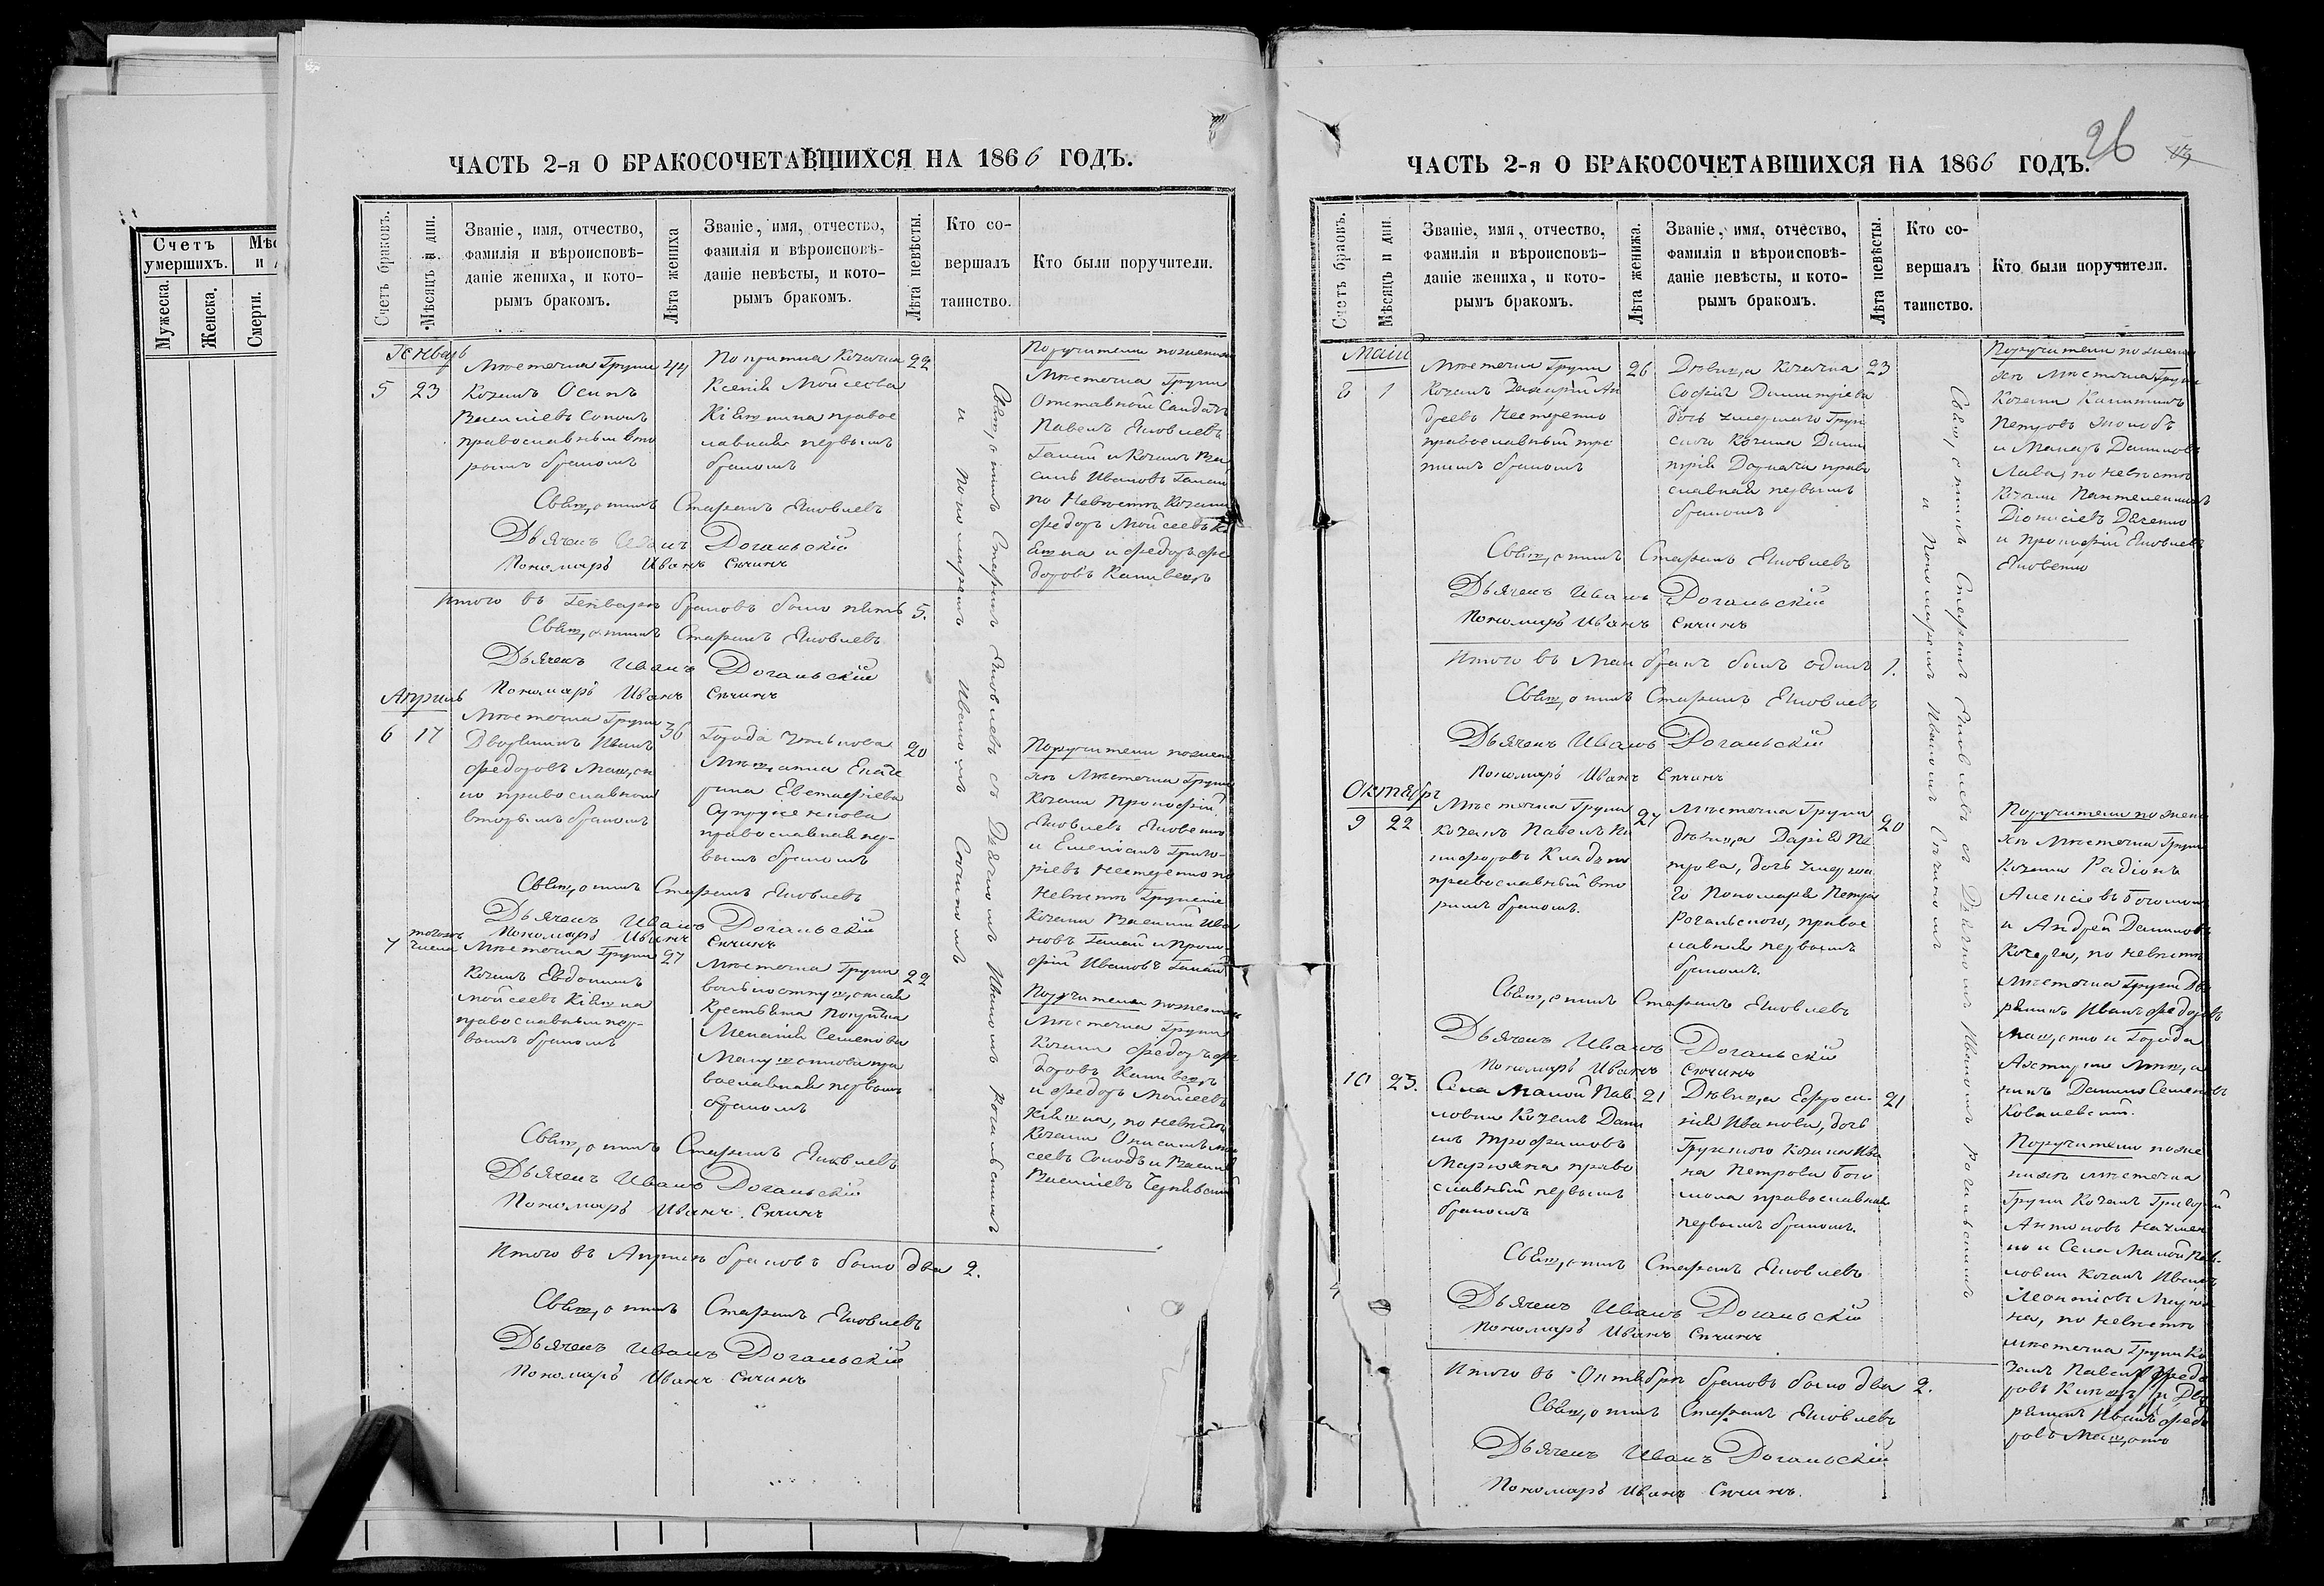 Счетъ
умершихъ.
Мужеска.
Женска.
Смерти.
ЧАСТЬ 2-я О БРАКОСОЧЕТАВШИХСЯ НА 1866 ГОДЪ.
Счетъ браковъ.
Мѣсяцъ и дни.
Званіе, имя, отчество,
фамилія и вѣроисповѣ-
даніе жениха, и кото-
рымъ бракомъ.
Лѣта жениха
Званіе, имя, отчество,
фамилія и вѣроисповѣ-
даніе невѣсты, и кото-
рымъ бракомъ.
Лѣта невѣсты.
Кто со-
вершалъ
таинство.
Кто были поручители.
Генварь
5 23
Мѣстечка Груни
Козакъ Осипъ
Василіевъ Соколъ
православный вто
рымъ бракомъ
44
Козачка
Ксенія Мойсеева
Кіяшка правос
лавная первымъ
бракомъ
22
Поручители по женихѣ
Мѣстечка Груни
Отставной Солдатъ
Павелъ Яковлевъ
Галай и Козакъ Ва
силь Ивановъ Галай
по Невѣстѣ Козаки
Федоръ Мойсеевъ Кі
яшка и Федоръ Фе
доровъ Каливецъ
Священникъ Стефанъ Яковлевъ
Дьячекъ Иванъ Рогальскій
Пономарь Иванъ Сѣчинъ
Итого въ Генварѣ браковъ было пять 5.
Священникъ Стефанъ Яковлевъ
Дьячекъ Иванъ Рогальскій
Пономарь Иванъ Сѣчинъ
Апрель
6 17
Мѣстечка Груни
Дворянинъ Иванъ
Федоровъ Мащен
ко православный
вторымъ бракомъ
36
Города
Мѣщанка Екате
рина Евстафіева
православная пер-
вымъ бракомъ
20
Поручители по жени
хѣ Мѣстечка Груни
Козаки Прокофій
Яковлевъ Яковенко
и Емеліанъ Григо-
ріевъ Нестеренко по
Невѣстѣ Грунскіе
Козаки Василій Ива
новъ Галай и Проко
фій Ивановъ Галай
Священникъ Стефанъ Яковлевъ
Дьячекъ Иванъ Рогальскій
Пономарь Иванъ Сѣчинъ
7 тогожъ
числа
Мѣстечка Груни
Козакъ Евдокимъ
Мойсеевъ Кіяшка
православный пер-
вымъ бракомъ
27
Мѣстечка Груни
вольноотпущенная
Крестьянка
Меланія Семенова
православная первымъ
бракомъ
22
Поручители по женихѣ
Мѣстечка Груни
Козаки Федоръ Фе
доровъ Каливецъ
и Федоръ Мойсеевъ
Кіяшка, по невѣстѣ
Козаки Онисимъ Мой
сеевъ Солодъ и Василій
Василіевъ Чернявскій
Священникъ Стефанъ Яковлевъ
Дьячекъ Иванъ Рогальскій
Пономарь Иванъ Сѣчинъ
Итого въ Апрелѣ браковъ было два 2.
Священникъ Стефанъ Яковлевъ
Дьячекъ Иванъ Рогальскій
Пономарь Иванъ Сѣчинъ
Священникъ Стефанъ Яковлевъ съ Дьячкомъ Иваномъ Рогальскимъ
и Пономаремъ Иваномъ Сѣчиномъ
26
ЧАСТЬ 2-я О БРАКОСОЧЕТАВШИХСЯ НА 1866 ГОДЪ.
Счетъ браковъ.
Мѣсяцъ и дни
Званіе, имя, отчество,
фамилія и вѣроисповѣ-
даніе жениха, и кото-
рымъ бракомъ.
Лѣта жениха.
Званіе, имя, отчество,
фамилія и вѣроисповѣ-
даніе невѣсты, и кото-
рымъ бракомъ.
Лѣта невѣсты.
Кто со-
вершалъ
таинство.
Кто были поручители.
Маій
8 1
Мѣстечка Груни
Козакъ Захарій Ан
дреевъ Нестеренко
православный тре
тимъ бракомъ
26
Дѣвица Козачка
Софія Димитріева
дочь умершаго Грун
скаго Козака Дими
трія православ
славная первымъ
бракомъ
23
Поручители по жени
хѣ Мѣстечка Груни
Козаки
Петровъ
и Макаръ Даниловъ
по невѣстѣ
Козаки Пантелеимонъ
Діонисіевъ
и Прокофій Яковлевъ
Яковенко
Священникъ Стефанъ Яковлевъ
Дьячекъ Иванъ Рогальскій
Пономарь Иванъ Сѣчинъ
Итого въ Маи бракъ былъ одинъ 1.
Священникъ Стефанъ Яковлевъ
Дьячекъ Иванъ Рогальскій
Пономарь Иванъ Сѣчинъ
Октябрь
9 22
Мѣстечка Груни
Козакъ Павелъ Ни
кифоровъ
православный вто
рымъ бракомъ.
27
Мѣстечка Груни
Дѣвица Дарія Пе
трова, дочь умерша
го Пономаря Петра
Рогальского, правос
лавная первымъ
бракомъ.
20
Поручители по жени
хѣ Мѣстечка Груни
Козаки Радіонъ
Алексіевъ Богомол
и Андрей Даниловъ
Кочерга, по невѣстѣ
Мѣстечка Груни Дво
рянинъ Иванъ Федоровъ
Мащенко и Города
Ахтырки Мѣща
нинъ Данило Семеновъ
Ковалевскій.
Священникъ Стефанъ Яковлевъ
Дьячекъ Иванъ Рогальскій
Пономарь Иванъ Сѣчинъ
10 23.
Села Малой Пав
ловки Козакъ Дани
лъ Трофимовъ
православ
славный первымъ
бракомъ
21
Дѣвица Ефроси-
нія Иванова, дочь
Грунского Козака Ива
на Петрова Бого
мола православная
первымъ бракомъ.
21
Поручители по же
нихѣ Мѣстечка
Груни Козакъ Григорій
Антоновъ
и Села Малой Пав-
ловки Козакъ Иванъ
Леонтіевъ
по невѣстѣ
Мѣстечка Груни Ко
закъ Павелъ Федо
ровъ и Дво
рянинъ Иванъ Федо
ровъ Мащенко
Священникъ Стефанъ Яковлевъ
Дьячекъ Иванъ Рогальскій
Пономарь Иванъ Сѣчинъ
Итого въ Октябрѣ браковъ было два 2.
Священникъ Стефанъ Яковлевъ
Дьячекъ Иванъ Рогальскій
Пономарь Иванъ Сѣчинъ.
Священникъ Стефанъ Яковлевъ съ Дьячкомъ Иваномъ Рогальскимъ
и Пономаремъ Иваномъ Сѣчиномъ